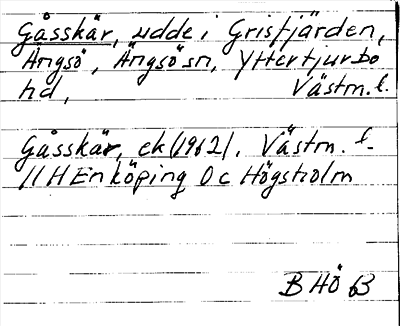 Gåsskär, udde i Grisfjärden,
Ängsö, Ängsö sn, Yttertjurbo
hd, Västm. l.
Gåsskär, ek (1962). Västm. l.
11 H Enköping 0 c Högholm
B Hö 63